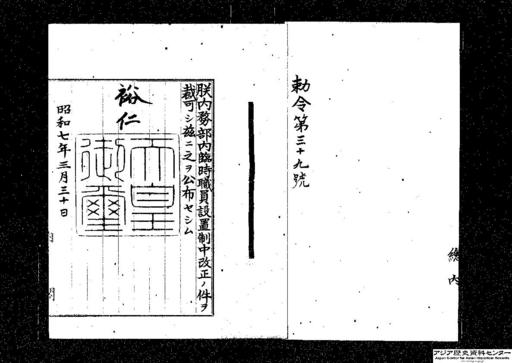 勅令第三十九號
朕内務部内臨時職員設置制中改正ノ件ヲ
裁可シ茲ニ之ヲ公布セシム
裕仁
天皇
御璽
昭和七年三月三十日
内閣
總
内
アジア歴史資料センター
Japan Center for Asian Historical Records